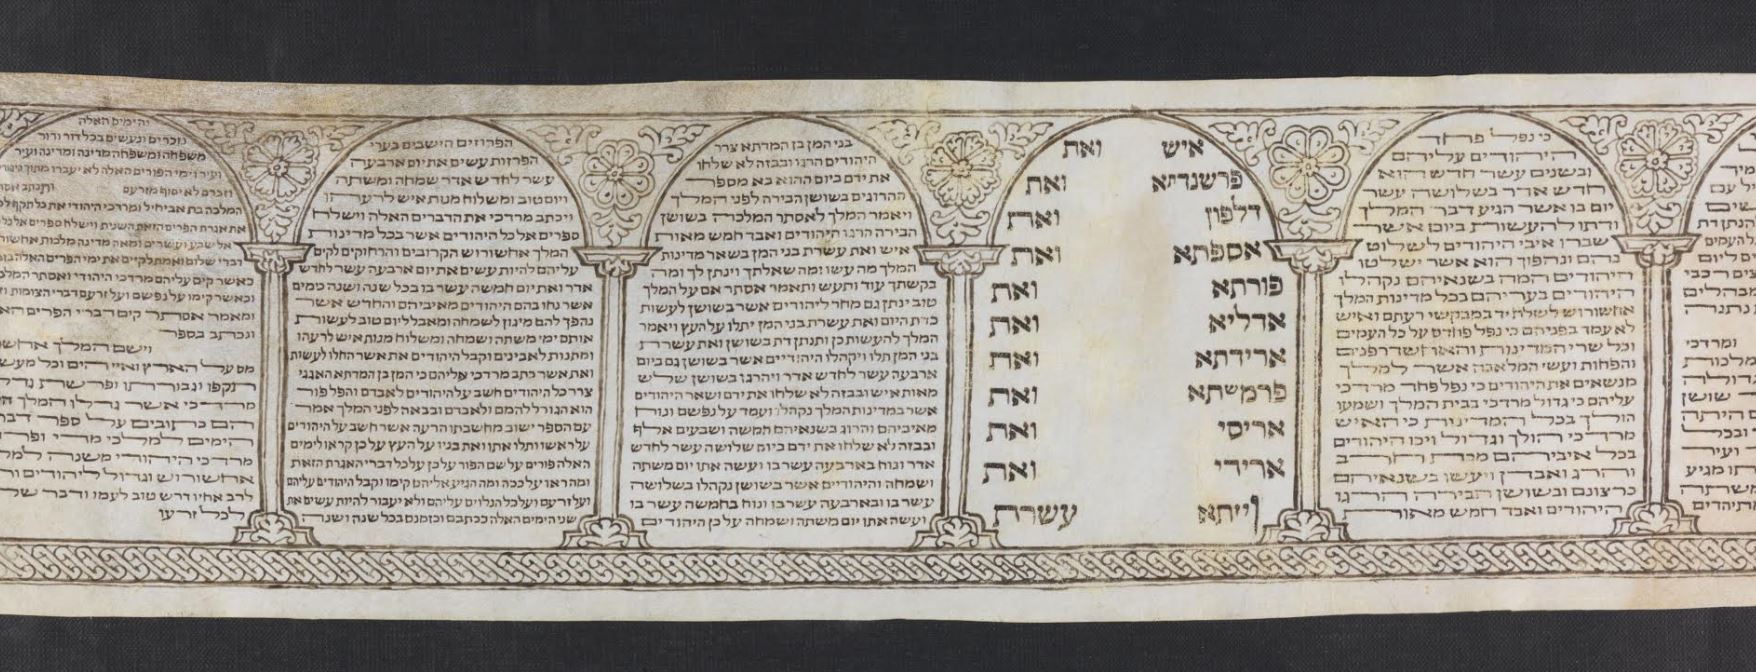 ל עם
שים
הנתן דת
העמים
ם ליום
ם הרכבי
מבהלים
נתנה
ומרדכי
מלכות
גדולה
שושן
היתה
ובכל
ועיר
ו מגיע
משתה
כי נפל פחד
היהודים עליהם
ובשנים עשר חדש הוא
חדש אדר בשלושה עשר
יום בו אשר הגיע דבר המלך
ודתו להעשות ביום אשר
שברו איבי היהודים לשלוט
בהם ונהפוך הוא אשר ישלטו
היהודים המה בשנאיהם נקהלו
היהודים בעריהם בכל מדינות המלך
אחשורוש לשלח יד במבקשי רעתם ואיש
לא עמד בפניהם כי נפל פחדם על כל העמים
וכל שרי המדינות והאחשדרפנים
והפחות ועשי המלאכה אשר למלך
מנשאים את היהודים כי נפל פחד מרדכי
עליהם כי גדול מרדכי בבית המלך ושמעו
הולך בכל המדינות כי האיש
מרדכי הולך וגדול ויכו היהודים
בכל איביהם מכת חרב
והרג ואבדן ויעשו בשנאיהם
כרצונם ובשושן הבירה הרגו
היהודים ואבד חמש מאות
איש ואת
פרשנדתא ואת
דלפון ואת
אספתא ואת
פורתא ואת
אדליא ואת
ארידתא ואת
פרמשתא ואת
אריסי ואת
ארידי ואת
ויזתא עשרת
בני המן בן המדתא צרר
היהודים הרגו ובבזה לא שלחו
את ידם ביום ההוא בא מספר
ההרוגים בשושן הבירה לפני המלך
ויאמר המלך לאסתר המלכה בשושן
הבירה הרגו היהודים ואבד חמש מאות
איש ואת עשרת בני המן בשאר מדינות
המלך מה עשו ומה שאלתך וינתן לך ומה
בקשתך עוד ותעש ותאמר אסתר אם על המלך
טוב ינתן גם מחר ליהודים אשר בשושן לעשות
כדת היום ואת עשרת בני המן יתלו על העץ ויאמר
המלך להעשות כן ותנתן דת בשושן ואת עשרת
בני המן תלו ויקהלו היהודיים אשר בשושן גם ביום
ארבעה עשר לחדש אדר ויהרגו בשושן שלש
מאות איש ובבזה לא שלחו את ידם ושאר היהודים
אשר במדינות המלך נקהלו ועמד על נפשם ונוח
מאיביהם והרוג בשנאיהם חמשה ושבעים אלף
ובבזה לא שלחו את ידם ביום שלושה עשר לחדש
אדר ונוח בארבעה עשר בו ועשה אתו יום משתה
ושמחה והיהודיים אשר בשושן נקהלו בשלושה
עשר בו ובארבעה עשר בו ונוח בחמשה עשר בו
ועשה אתו יום משתה ושמחה על כן היהודים
הפרוזים הישבים בערי
הפרזות עשים את יום ארבעה
עשר לחדש אדר שמחה ומשתה
ויום טוב ומשלוח מנות איש לרעהו
ויכתב מרדכי את הדברים האלה וישלח
ספרים אל כל היהודים אשר בכל מדינות
המלך אחשורוש הקרובים והרחוקים לקים
עליהם להיות עשים את יום ארבעה עשר לחדש
אדר ואת יום חמשה עשר בו בכל שנה ושנה כימים
אשר נחו בהם היהודים מאיביהם והחדש אשר
נהפך להם מיגון לשמחה ומאבל ליום טוב לעשות
אותם ימי משתה ושמחה ומשלוח מנות איש לרעהו
ומתנות לאבינים וקבל היהודים את אשר החלו לעשות
ואת אשר כתב מרדכי אליהם כי המן בן המדתא האגגי
צרר כל היהודים חשב על היהודים לאבדם והפל פור
הוא הגורל להמם ולאבדם ובבאה לפני המלך אמר
עם הספר ישוב מחשבתו הרעה אשר חשב על היהודים
על ראשו ותלו אתו ואת בניו על העץ על כן קראו לימים
האלה פורים על שם הפור על כן על כל דברי האגרת הזאת
ומה ראו על ככה ומה הגיע אליהם קימו וקבל היהודים עליהם
ועל זרעם ועל כל הנלוים עליהם ולא יעבור להיות עשים את
שני הימים האלה ככתבם וכזמנם בכל שנה ושנה
והימים האלה
נזכרים ונעשים בכל דור ודור
משפחה ומשפחה מדינה ומדינה ועיר
ועיר וימי הפורים האלה לא יעברו מתוך היהודים
וזכרם לא יסוף מזרעם ותכתב אסתר
המלכה בת אביחיל ומרדכי היהודי את כל תקף
את אגרת הפרים הזאת השנית וישלח ספרים אל כל
אל שבע ועשרים ומאה מדינה מלכות אחשורוש
דברי שלום ואמת לקים את ימי הפרים האלה
כאשר קים עליהם מרדכי היהודי ואסתר המלכה
וכאשר קימו על נפשם ועל זרעם דברי הצומות
ומאמר אסתר קים דברי הפרים האלה
ונכתב בספר
וישם המלך אחשורש
מס על הארץ ואיי הים וכל מעשה
תקפו וגבורתו ופרשת גדלת
מרדכי אשר גדלו המלך
הם כתובים על ספר דברי
הימים למלכי מדי ופרס
מרדכי היהודי משנה למלך
אחשורוש וגדול ליהודים
לרב אחיו דרש טוב לעמו ודבר שלום
לכל זרעו